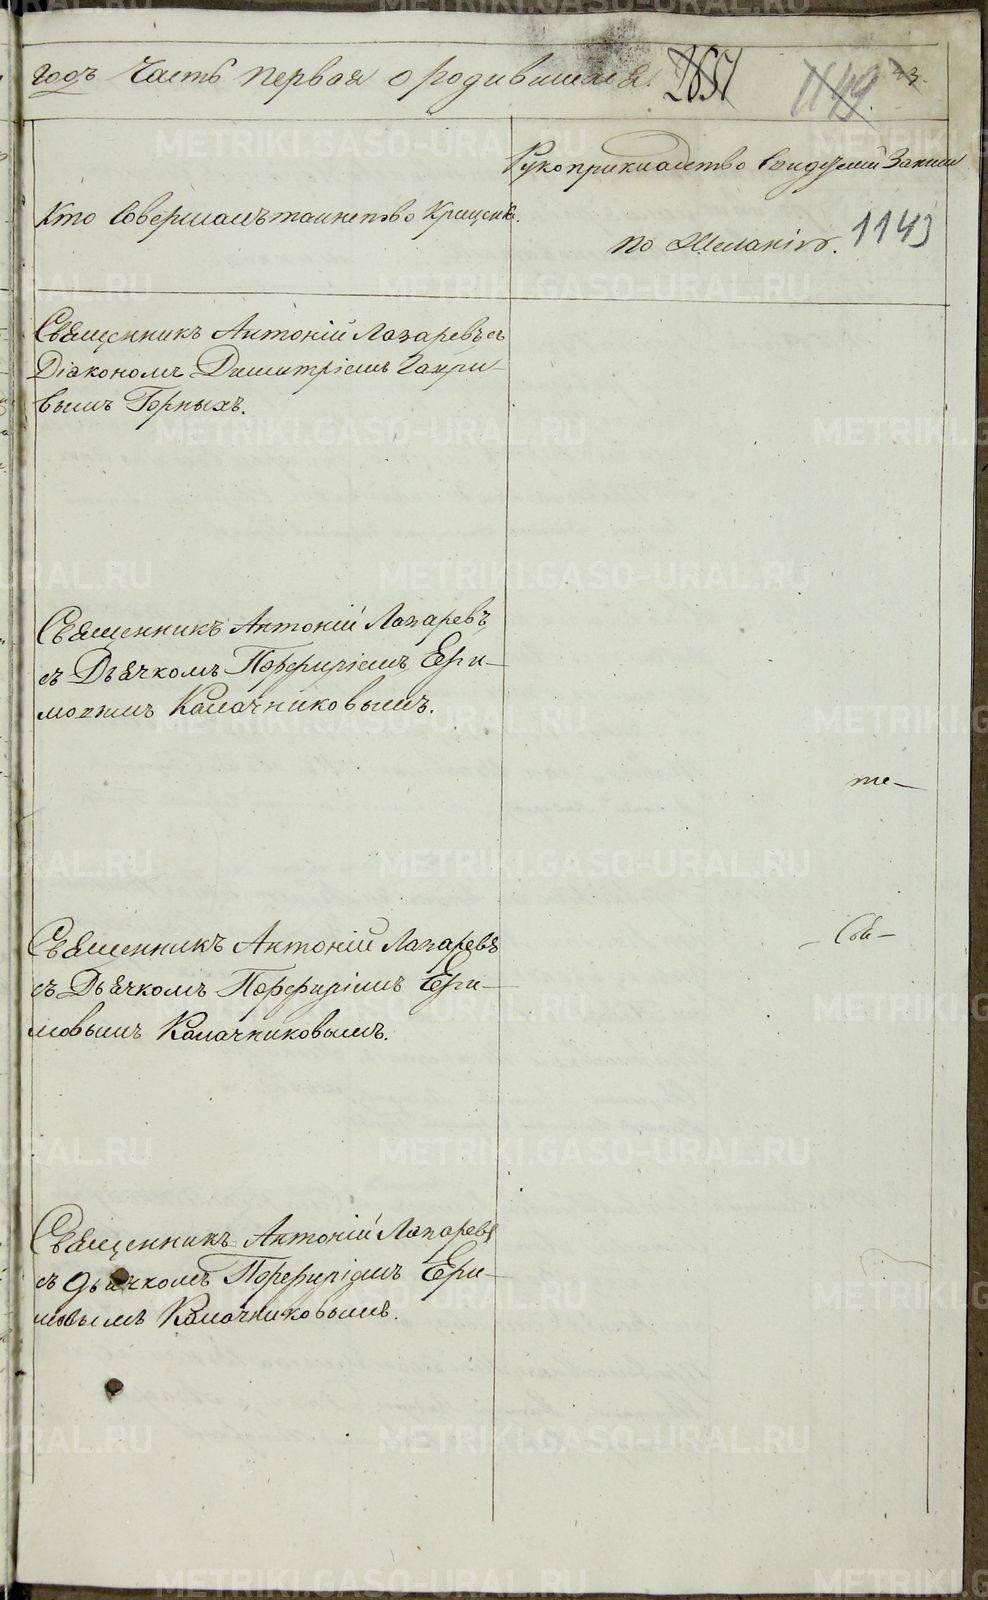 годъ Часть первая о родившихся.
2657
1149
23.
Кто совершалъ таинство Крещенія.
Рукоприкладство свидѣтелей записи
по желанію.
1143
Священникъ Антоній Лазаревъ съ
Діакономъ Димитріемъ Гаври-
вымъ Горныхъ.
Священникъ Антоній Лазаревъ,
съ Дьячкомъ Порфиріемъ Ери-
мовымъ Калачниковымъ.
те-
Священникъ Антоній Лазаревъ
съ Дьячкомъ Порфиріемъ Ери-
мовымъ Калачниковымъ.
- Сви-
Священникъ Антоній Лазаревъ
съ дьячкомъ Порфиріемъ Ери-
мовымъ Калачниковымъ.
METRIKI.GASO-URAL.RU